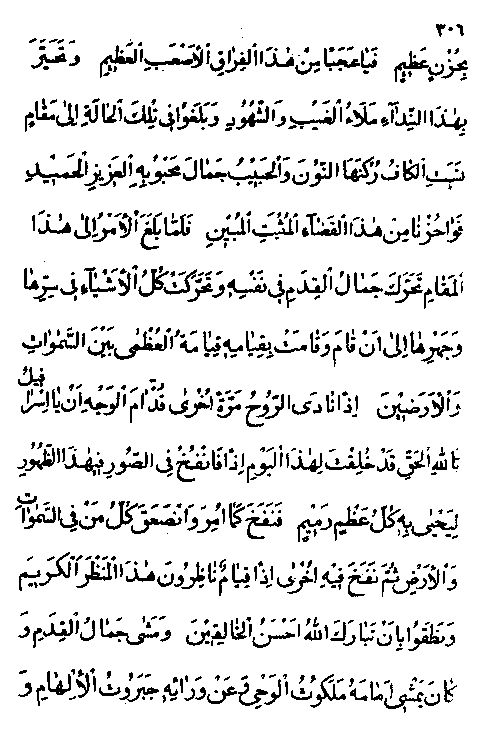 ٣٠٦
بِحُزْنٍ عَظِيمٍ فَيَا عَجَبَا مِنْ هٰذَا الْفِرَاقِ الْأَصْعَبِ الْعَظِيمِ وَتَحَيَّرَ
بِهٰذَا النِّدَآءِ مَلَاءُ الْغَيْبِ وَالشُّهُودِ وَبَلَغُوا فِي تِلْكَ الْحَالَةِ إِلَىٰ مَقَامٍ
نَسَتِ الْكَافُ رُكْنَهَا النُّونَ وَالْحَبِيْبُ جَمَالَ مَحْبُوبِهِ الْعَزِيزِ الْحَمِيدِ
فَوَاحُزْنَا مِنْ هٰذَا الْقَضَآءِ الْمُثْبَتِ الْمُبِيْنِ فَلَمَّا بَلَغَ الْأَمْرُ إِلىٰ هٰذَا
الْمَقَامِ تَحَرَّكَ جَمَالُ الْقِدَمِ فِي نَفْسِهِ وَتَحَرَّكَتْ كُلُّ الْأَشْيَآءِ فِي سِرِّهَا
وَجَهْرِهَا إِلىٰ اَنْ قَامَ وَقَامَتْ بِقِيَامِهِ قِيَامَةُ الْعُظْمىٰ بَيْنَ السَّمٰوَاتِ
وَالْأَرَضِيْنَ إِذًا نَادَى الرُّوحُ مَرَّةً اُخْرىٰ قُدَّامَ الْوَجْهِ اَنْ يَا إِسْرَافِيلُ
تَاللهِ الْحَقِّ قَدْ خُلِقْتَ لِهٰذَا الْيَوْمِ إِذًا فَانْفُخْ فِي الصُّورِ فِي هٰذَا الظُّهُورِ
لِيَحْيىٰ بِهِ كُلُّ عَظْمٍ رَمِيْمٍ فَنَفَخَ كَمَا اُمِرَ وَانْصَعَقَ كُلُّ مَنْ فِي السَّمٰوَاتِ
وَالْأَرْضِ ثُمَّ نَفَخَ فِيْهِ اُخْرىٰ إِذًا قِيَامٌ نَاظِرُونَ هٰذَا الْمَنْظَرَ الْكَرِيمَ
وَنَطَقُوا بِاَنْ تَبَارَكَ اللهُ اَحْسَنُ الْخَالِقِيْنَ وَمَشىٰ جَمَالُ الْقِدَمِ وَ
كَانَ يَمْشِي اَمَامَهُ مَلَكُوتُ الْوَحْيِ وَعَنْ وَرَائِهِ جَبَرُوتُ الْاِلْهَامِ وَ